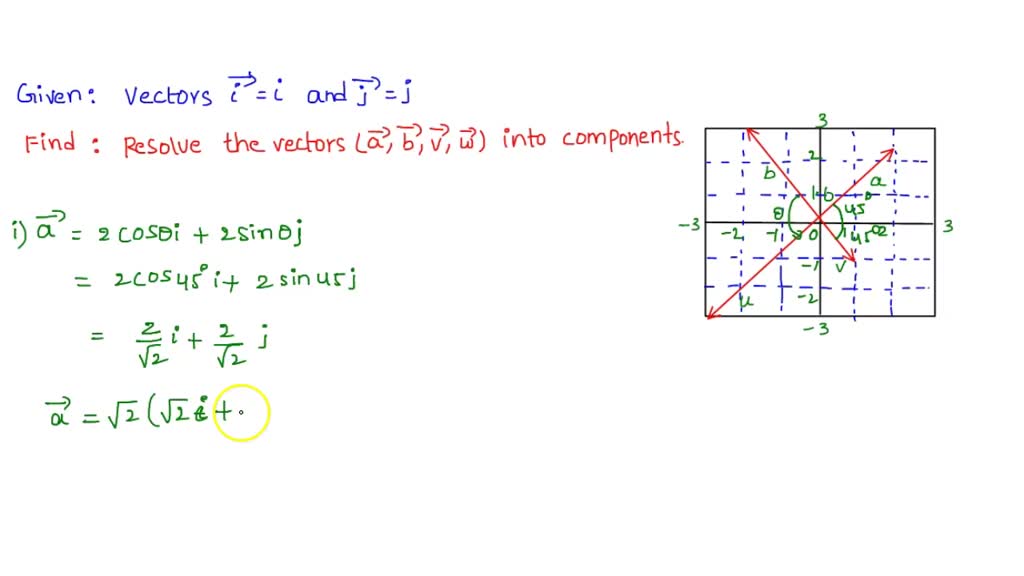 Given: Vectors i⃗ = i and j⃗ = j
Find : Resolve the vectors (a⃗, b⃗, v⃗, w⃗) into components.
i) a⃗ = 2 cosθi + 2 sinθj
= 2 cos 45° i + 2 sin 45 j
= 2/√2 i + 2/√2 j
a⃗ = √2 (√2 i +
3
2
b
a
1
b
θ
45
-3
-2
-1
0
1
45°
2
3
-1
v
u
-2
-3